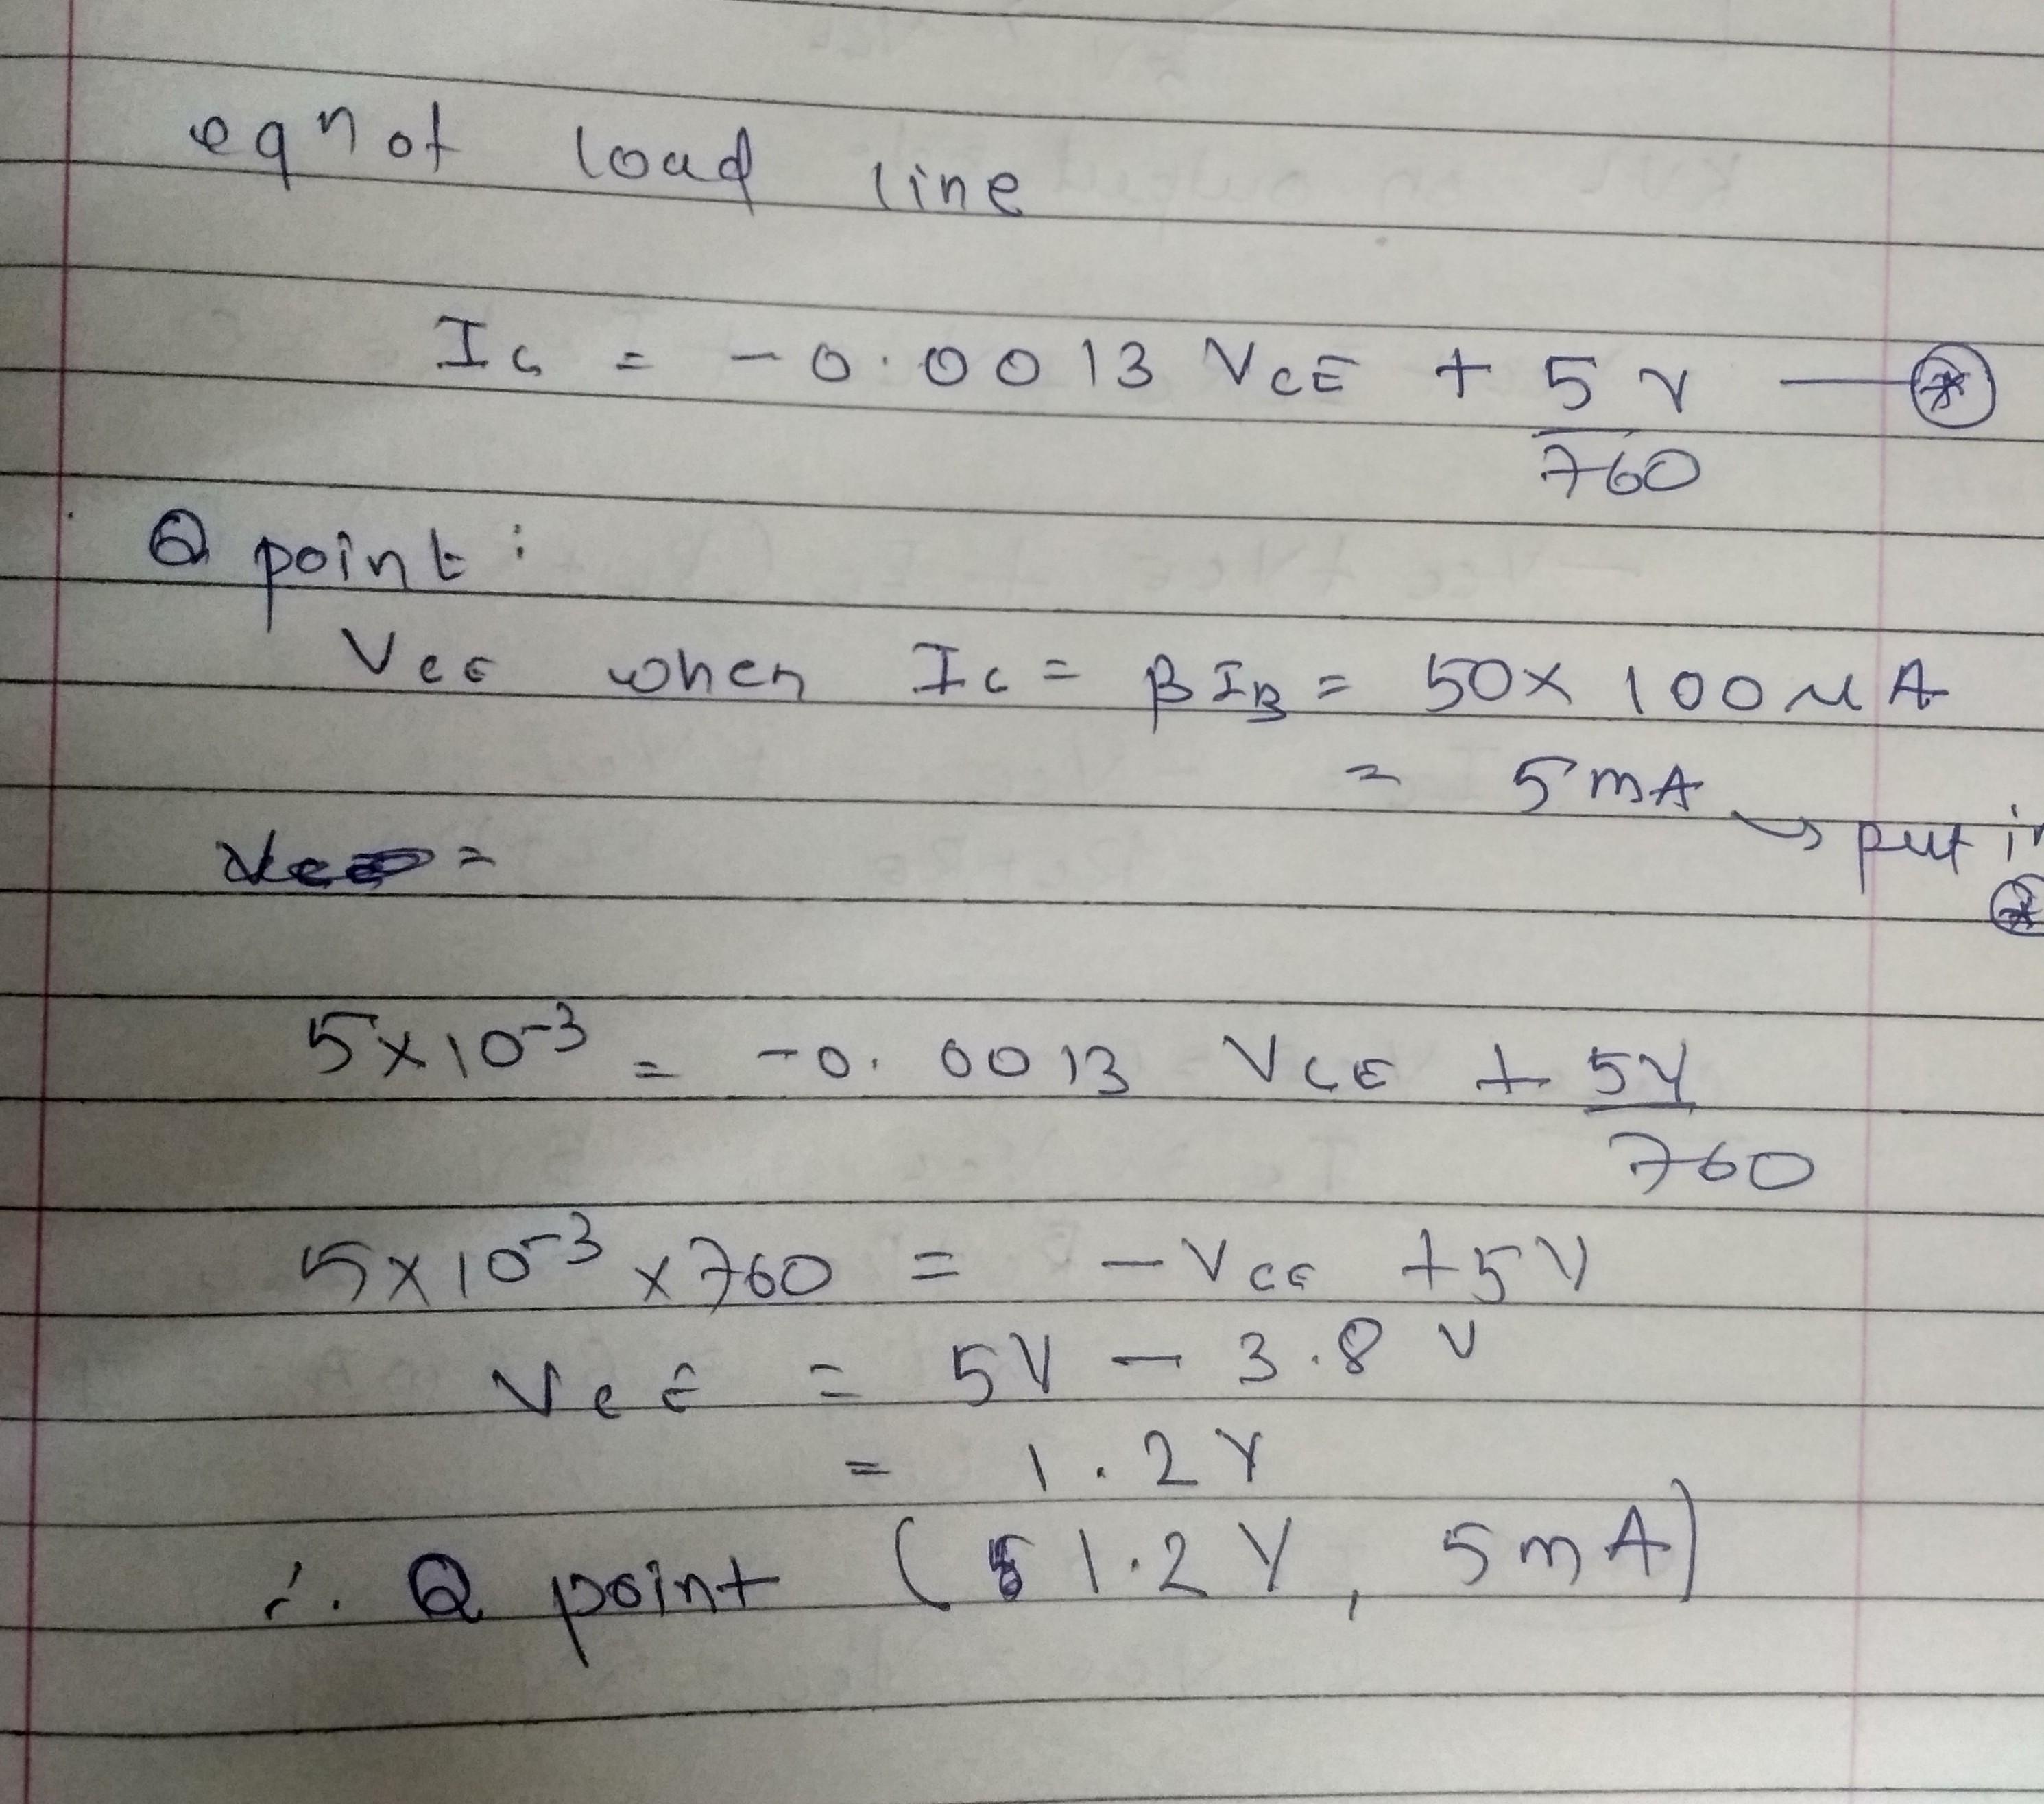 eqn of load line
I_C = -0.0013 V_CE + 5V/760 — ⊛
Q point :
V_CE when I_C = βI_B = 50 x 100 μA
= 5 mA → put in
⊛
=
5x10⁻³ = -0.0013 V_CE + 5V/760
5x10⁻³ x 760 = -V_CE + 5V
V_CE = 5V - 3.8 V
= 1.2 V
∴ Q point ( 1.2 V, 5 mA)